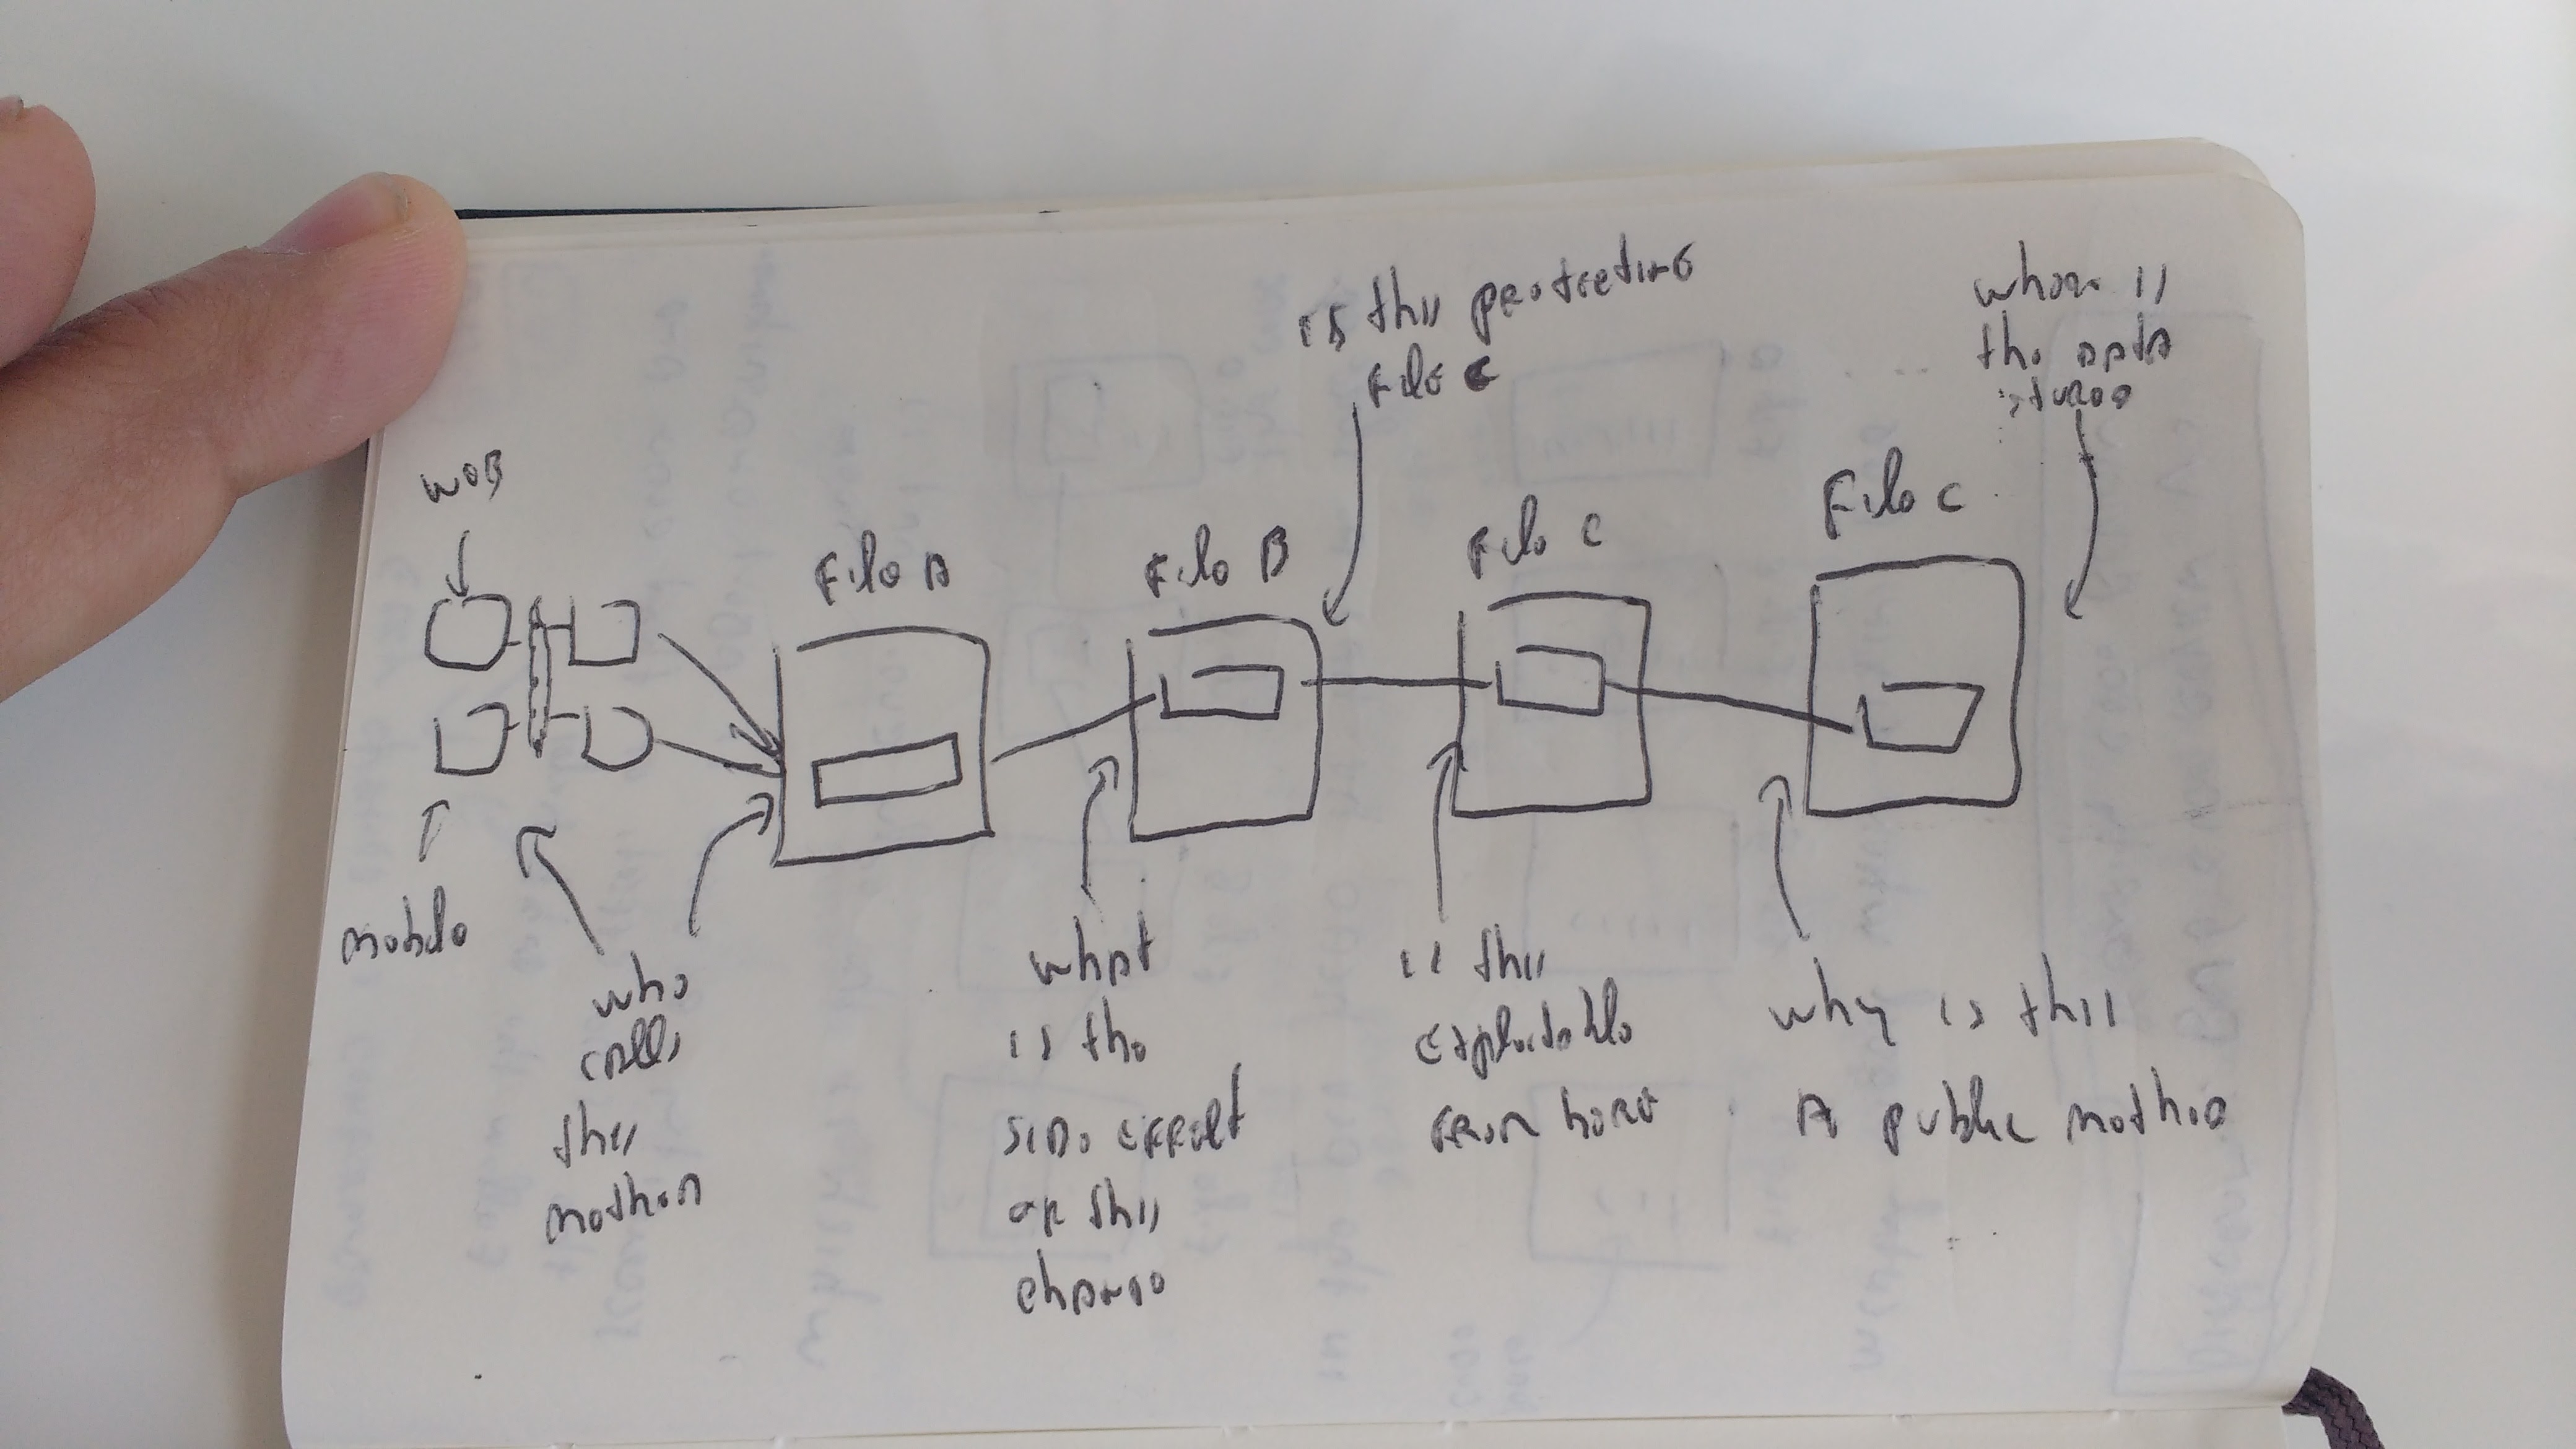 is this protecting
File C
where is
the data
stored
Web
File A
File B
File C
File C
mobile
who
calls
this
method
what
is the
side effect
of this
change
is this
exploitable
from here
why is this
A public method